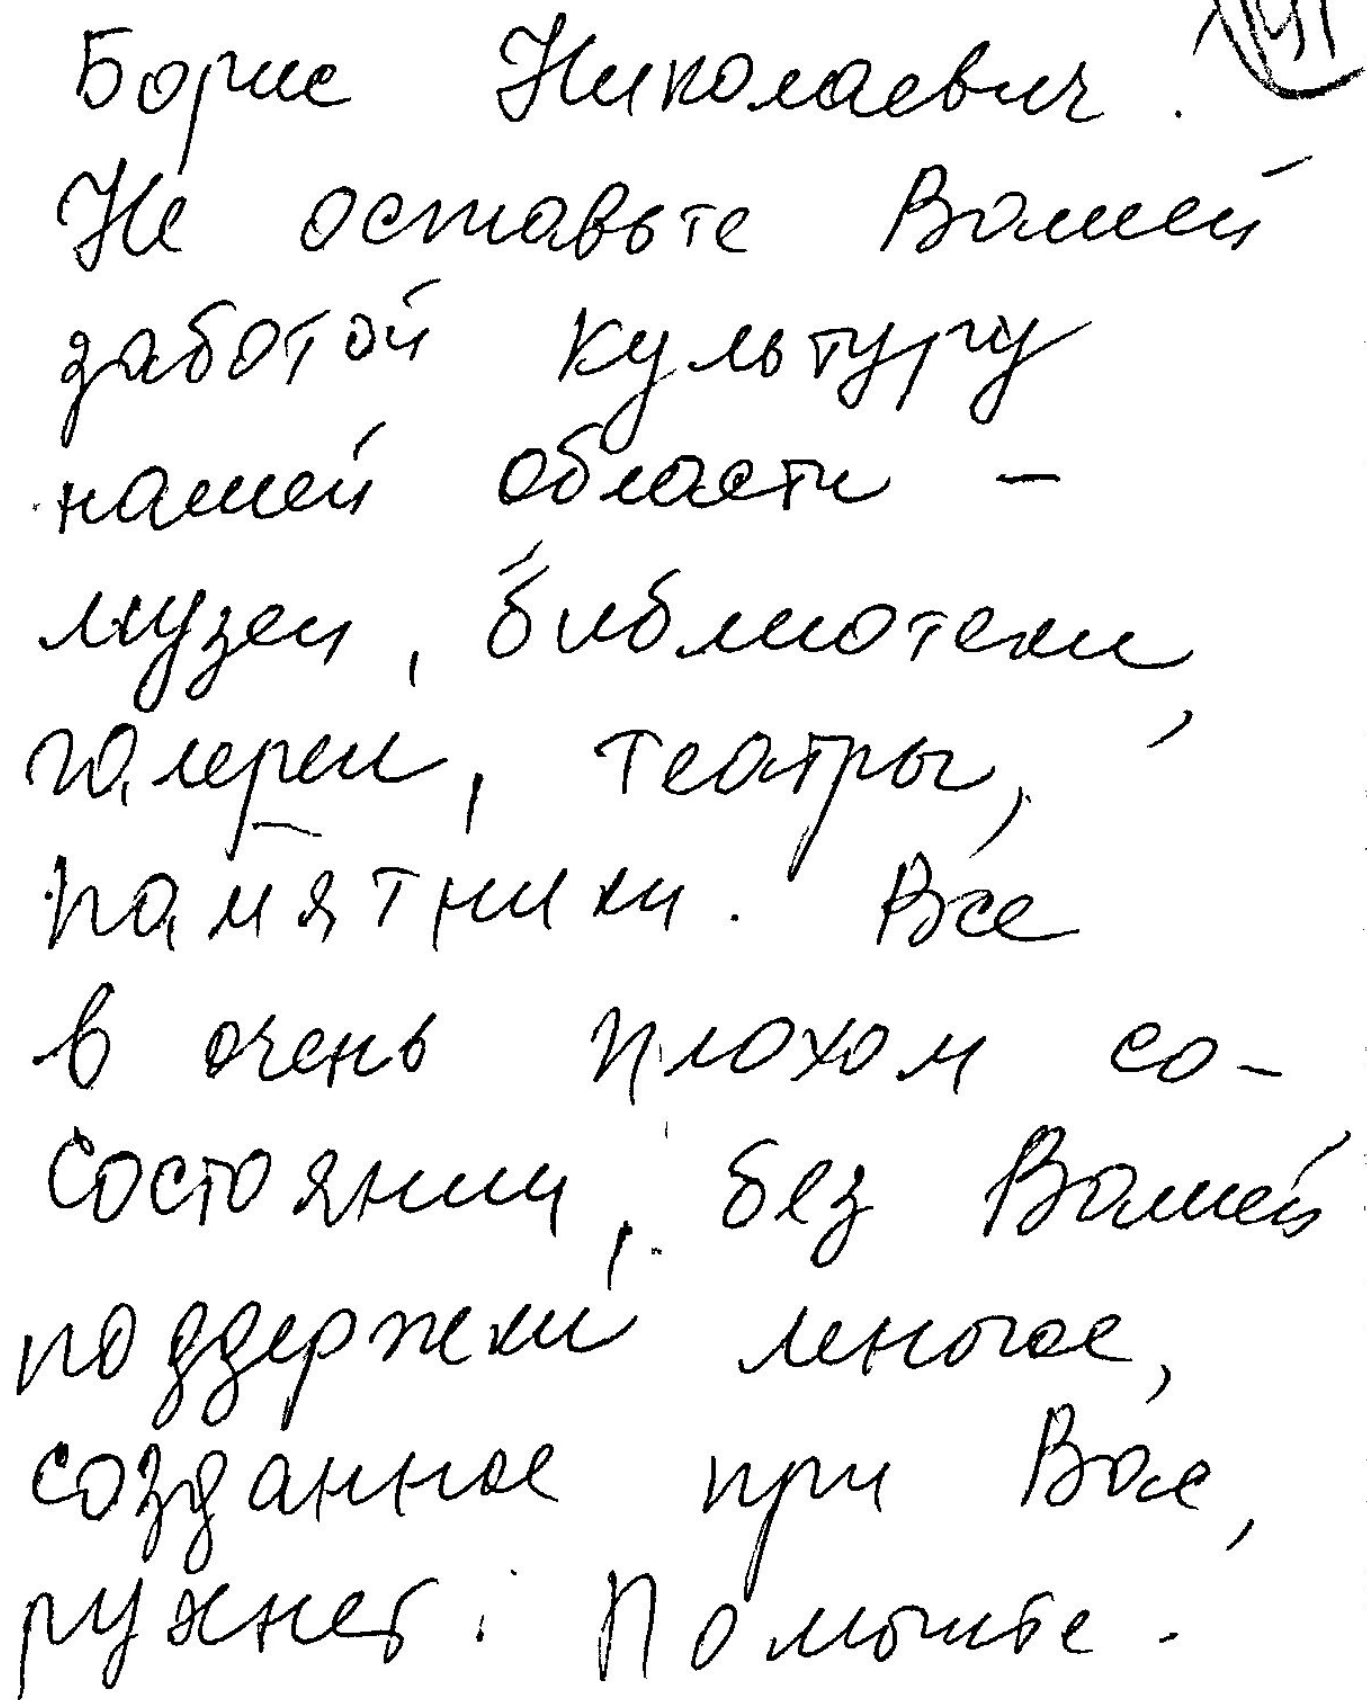 Борис Николаевич.
Не оставьте Вашей
заботой культуру
нашей области –
музеи, библиотеки,
галереи, театры,
памятники. Все
в очень плохом со-
состоянии, без Вашей
поддержки многое,
созданное при Вас,
рухнет. Помогите.